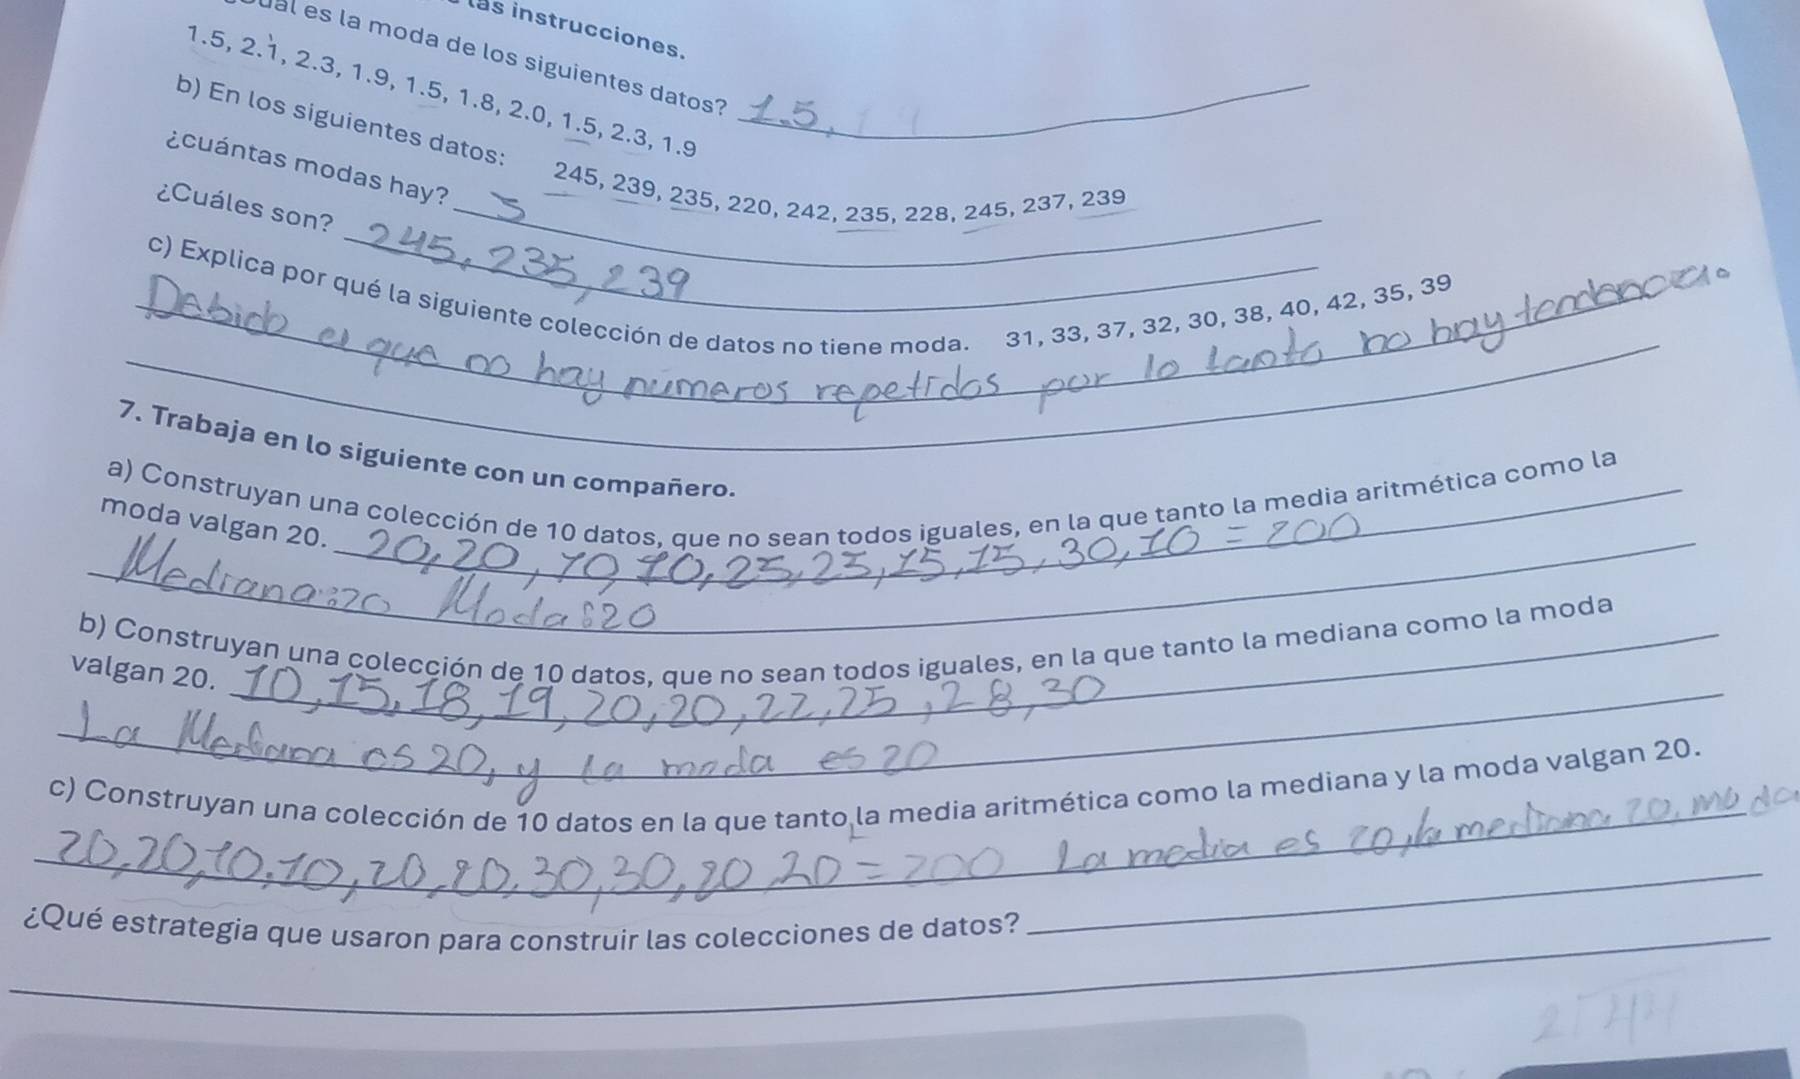 las instrucciones.
es la moda de los siguientes datos? 1.5,
1.5, 2.1, 2.3, 1.9, 1.5, 1.8, 2.0, 1.5, 2.3, 1.9
b) En los siguientes datos: 245, 239, 235, 220, 242, 235, 228, 245, 237, 239
¿cuántas modas hay?
¿Cuáles son? 245, 235, 239
c) Explica por qué la siguiente colección de datos no tiene moda. 31, 33, 37, 32, 30, 38, 40, 42, 35, 39
Debido el que no hay números repetidos por lo tanto no hay
7. Trabaja en lo siguiente con un compañero.
a) Construyan una colección de 10 datos, que no sean todos iguales, en la que tanto la media aritmética como la
moda valgan 20. 20, 20, 25, 25, 15, 15, 30, 10 = 200
Mediana:20 Moda:20
b) Construyan una colección de 10 datos, que no sean todos iguales, en la que tanto la mediana como la moda
valgan 20. 10, 15, 18, 19, 20, 20, 22, 25, 28, 30
La Mediana es 20, y la moda es 20
c) Construyan una colección de 10 datos en la que tanto la media aritmética como la mediana y la moda valgan 20.
20, 20, 10, 10, 20, 20, 30, 30, 20, 20 = 200 La media es 20, la mediana 20, moda
¿Qué estrategia que usaron para construir las colecciones de datos?